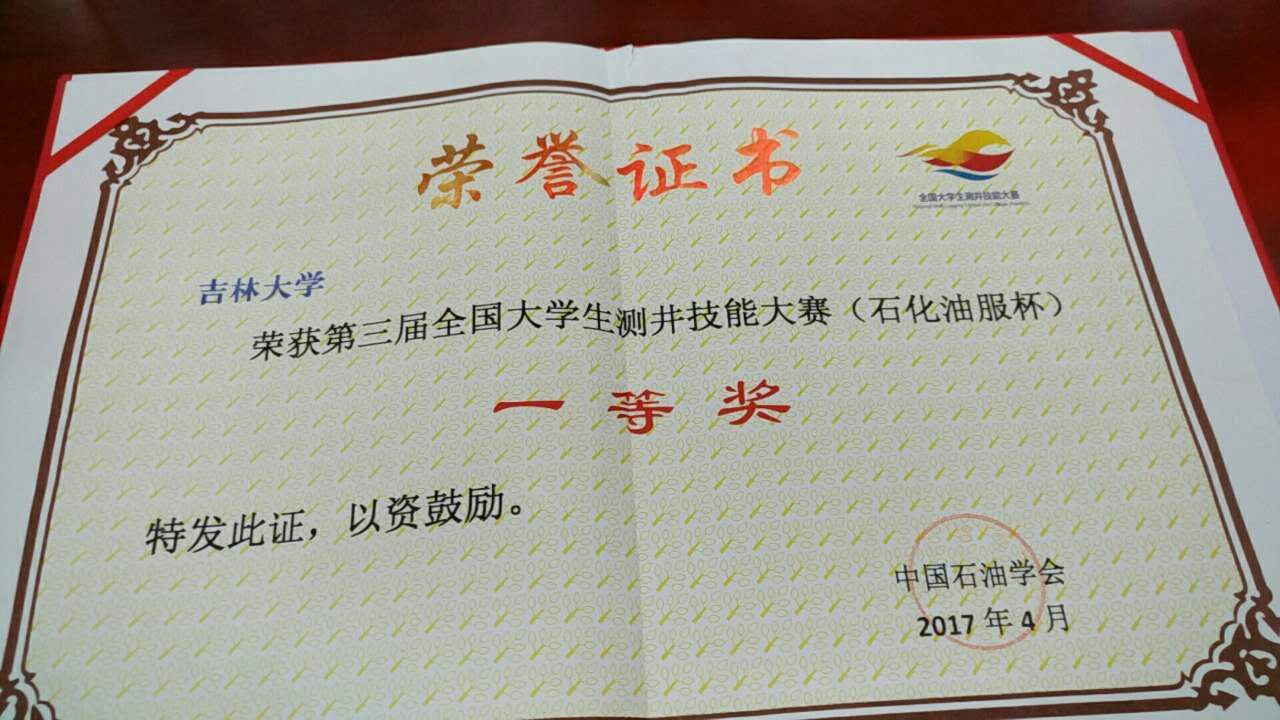 荣誉证书
全国大学生测井技能大赛
吉林大学
荣获第三届全国大学生测井技能大赛（石化油服杯）
一等奖
特发此证，以资鼓励。
中国石油学会
2017年4月